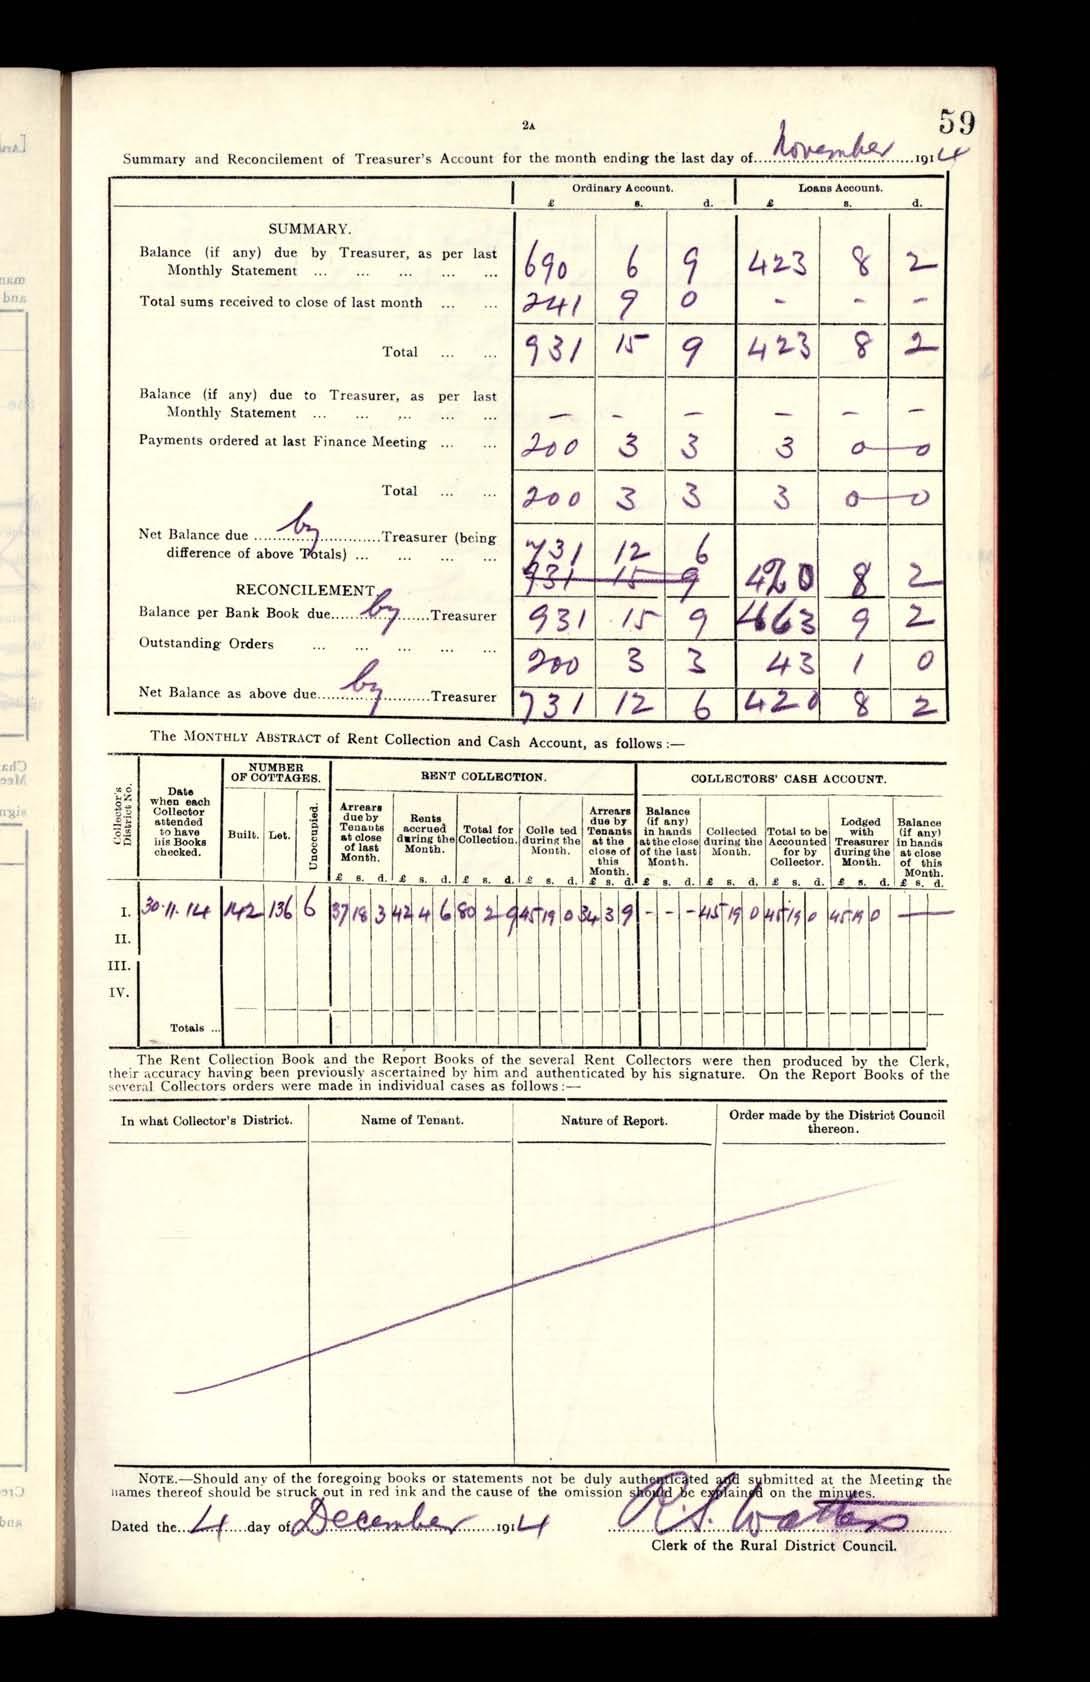 59
2A
Summary and Reconcilement of Treasurer's Account for the month ending the last day of November 1914
Ordinary Account. Loans Account.
£ s. d. £ s. d.
SUMMARY.
Balance (if any) due by Treasurer, as per last
Monthly Statement ... ... ... ... ... 690 6 9 423 8 2
Total sums received to close of last month ... ... 241 9 0 - - -
Total ... ... 931 15 9 423 8 2
Balance (if any) due to Treasurer, as per last
Monthly Statement ... ... ... ... ... — - — — — —
Payments ordered at last Finance Meeting ... ... 200 3 3 3 0 0
Total ... ... 200 3 3 3 0 0
Net Balance due by Treasurer (being
difference of above Totals) ... ... ... ... 731 12 6
931 15 9 420 8 2
RECONCILEMENT
Balance per Bank Book due by Treasurer 931 15 9 463 9 2
Outstanding Orders ... ... ... ... ... 200 3 3 43 1 0
Net Balance as above due by Treasurer 731 12 6 420 8 2
The MONTHLY ABSTRACT of Rent Collection and Cash Account, as follows :—
Collector's District No.
Date when each Collector attended to have his Books checked.
NUMBER OF COTTAGES.
Built. Let. Unoccupied.
RENT COLLECTION.
Arrears due by Tenants at close of last Month.
Rents accrued during the Month.
Total for Collection.
Colle ted during the Month.
Arrears due by Tenants at the close of this Month.
COLLECTORS' CASH ACCOUNT.
Balance (if any) in hands at the close of the last Month.
Collected during the Month.
Total to be Accounted for by Collector.
Lodged with Treasurer during the Month.
Balance (if any) in hands at close of this Month.
£ s. d. £ s. d. £ s. d. £ s. d. £ s. d. £ s. d. £ s. d. £ s. d. £ s. d. £ s. d.
I. 30.11.14 142 136 6 37 18 3 42 4 6 80 2 9 45 19 0 34 3 9 - - - 45 19 0 45 19 0 45 19 0 —
II.
III.
IV.
Totals ...
The Rent Collection Book and the Report Books of the several Rent Collectors were then produced by the Clerk,
their accuracy having been previously ascertained by him and authenticated by his signature. On the Report Books of the
several Collectors orders were made in individual cases as follows :—
In what Collector's District. Name of Tenant. Nature of Report. Order made by the District Council thereon.
NOTE.—Should any of the foregoing books or statements not be duly authenticated and submitted at the Meeting the
names thereof should be struck out in red ink and the cause of the omission should be explained on the minutes.
Dated the 4 day of December 1914 R.S. Watters
Clerk of the Rural District Council.